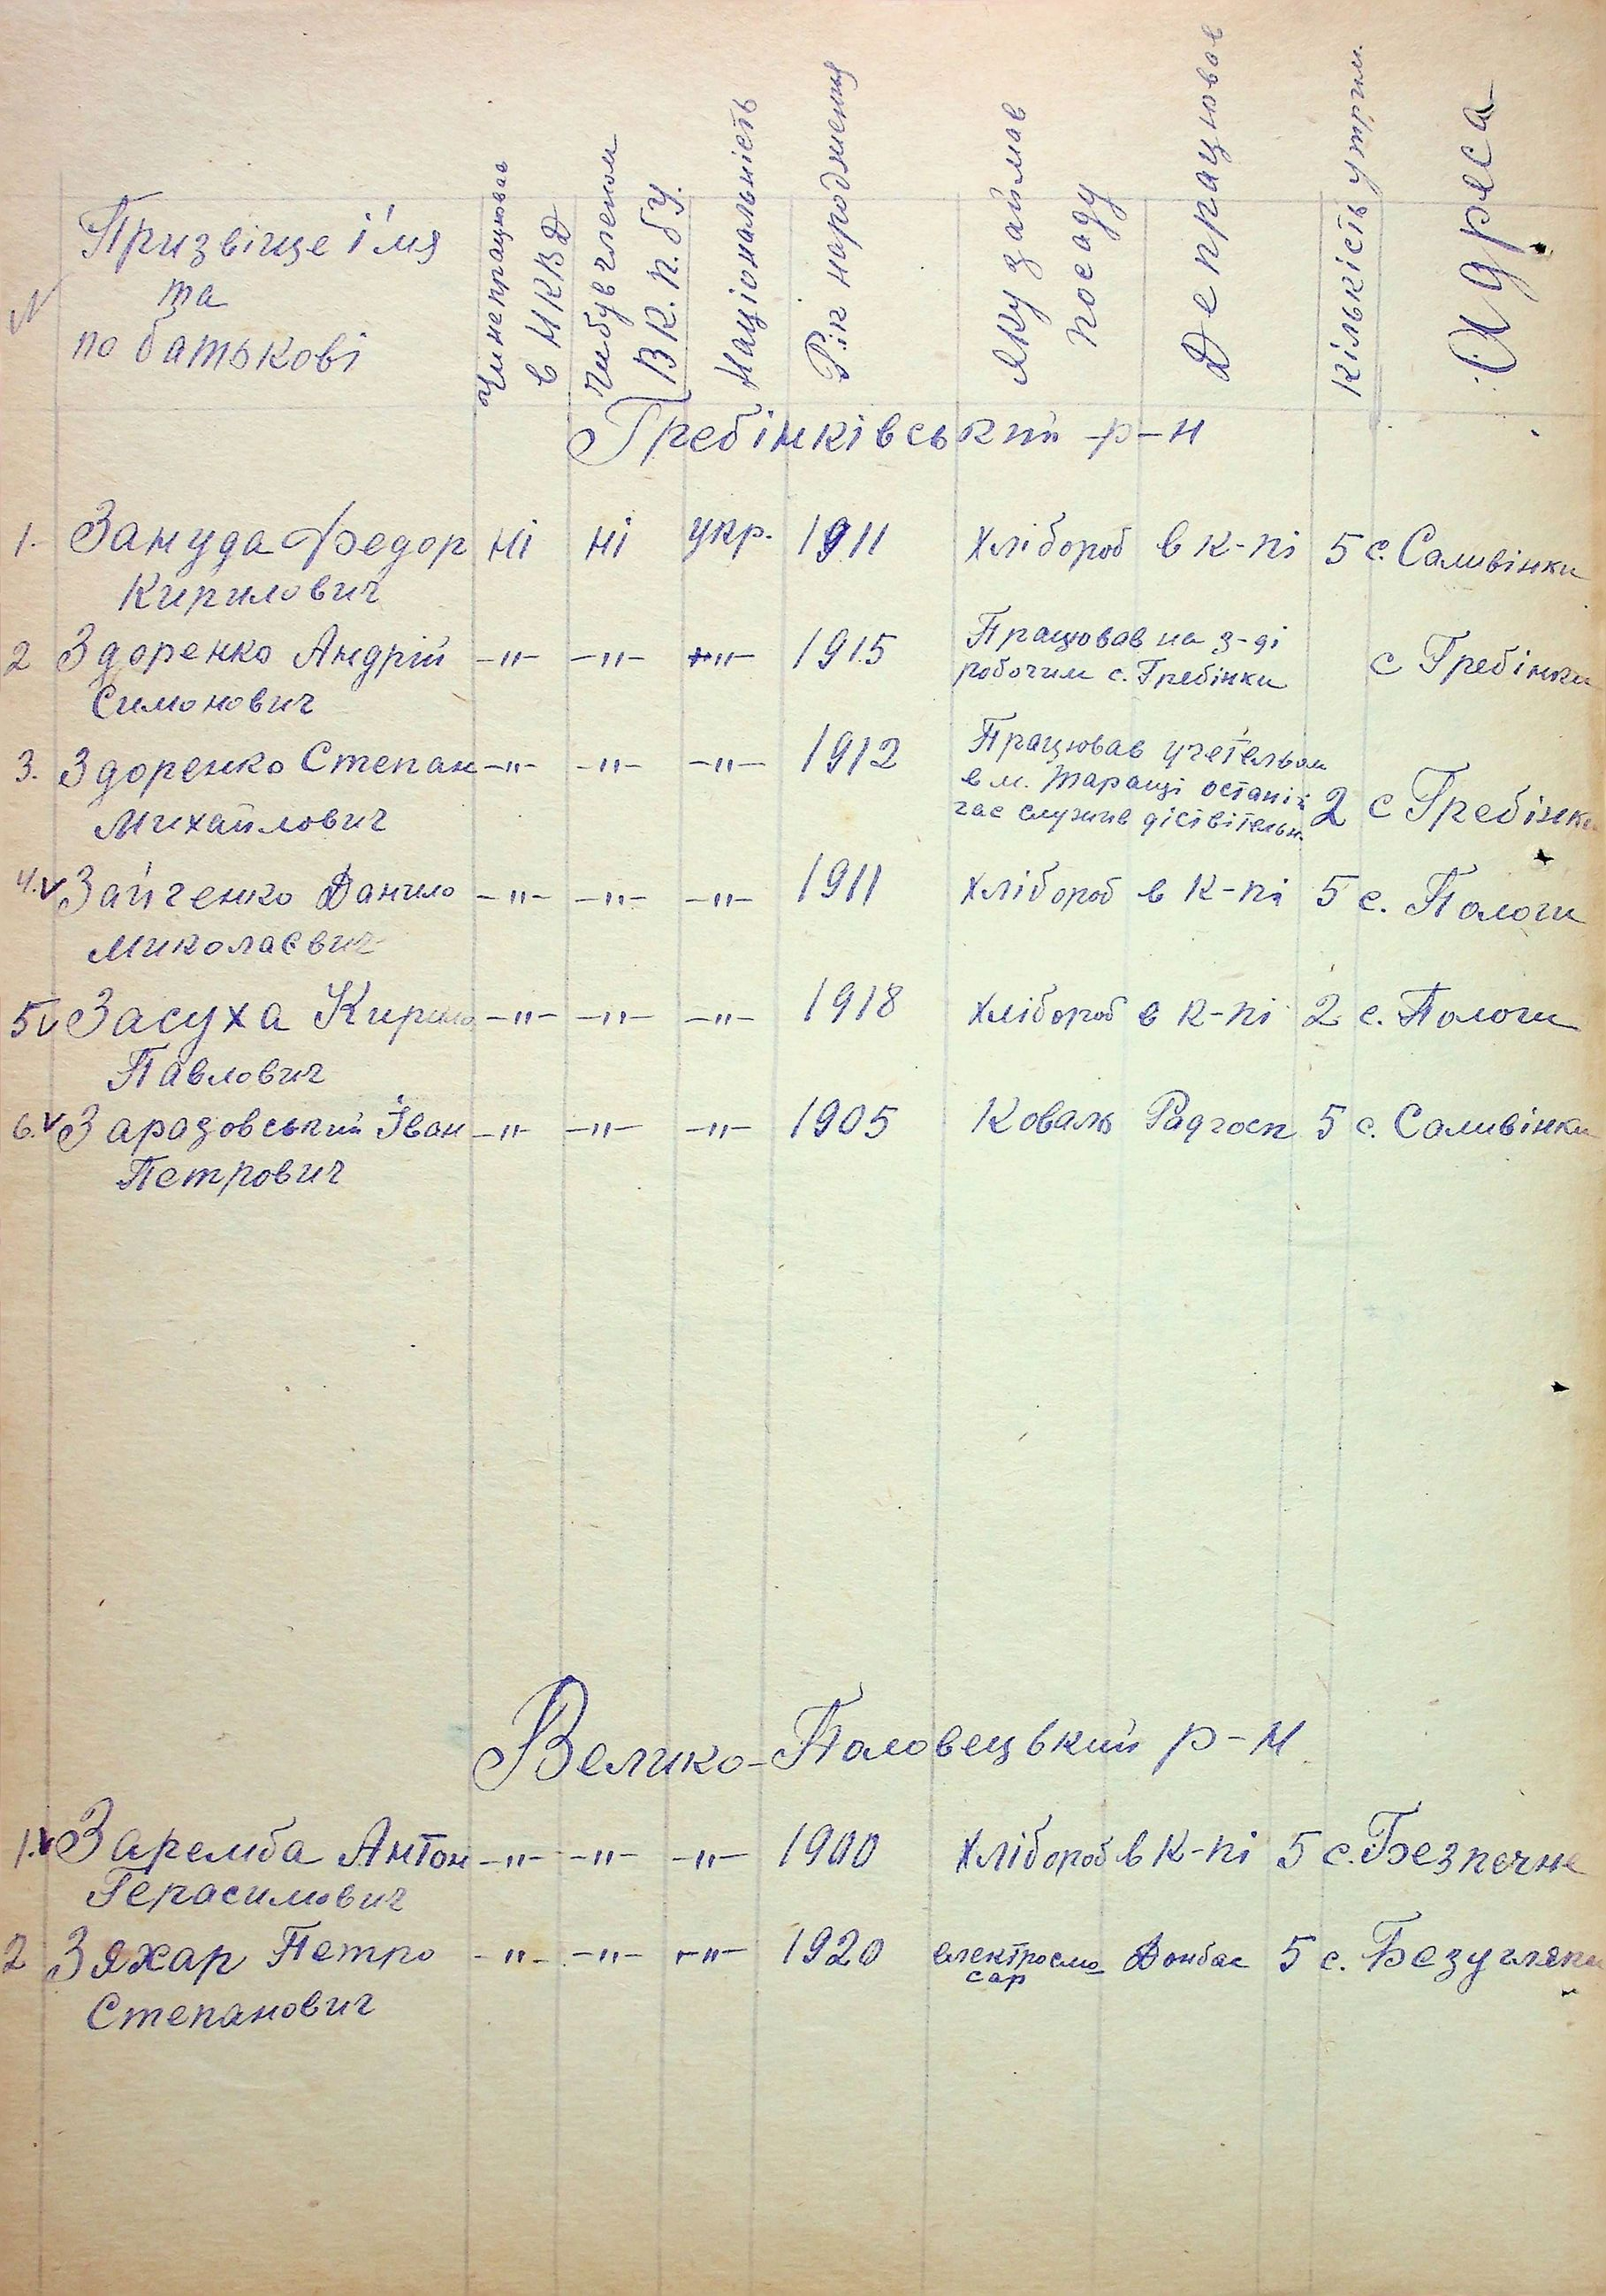 № Призвіще і'мя
та
по батькові
Чи не працював
в НКВД
Чи був членом
В К. п. б У.
Національність
Рік народження
Яку займав
посаду
Де працював
Кількість утрим.
Адреса
Гребінківський р-н
1. Зануда Федор ні ні укр. 1911 хлібороб в к-пі 5 с. Саливінки
Кирилович
2 Здоренко Андрій -"- -"- -"- 1915 Працював на з-ді
робочим с. Гребінки с Гребінки
Симонович
3. Здоренко Степан -"- -"- -"- 1912 Працював учетельом
в м. Таращі останій
час служив дієтвітельн. 2 с Гребінки
Михайлович
4. v Зайченко Данило -"- -"- -"- 1911 хлібороб в к-пі 5 с. Пологи
Миколаєвич
5 v Засуха Кирило -"- -"- -"- 1918 хлібороб в к-пі 2 с. Пологи
Павлович
6. v Зарадовський Іван -"- -"- -"- 1905 Коваль Радгосп 5 с. Саливінки
Петрович
Велико-Половецький р-н
1. v Заремба Антон -"- -"- -"- 1900 хлібороб в к-пі 5 с. Безпечне
Герасимович
2 Зяхар Петро -"- -"- -"- 1920 електросле-
сар Донбас 5 с. Безугляки
Степанович